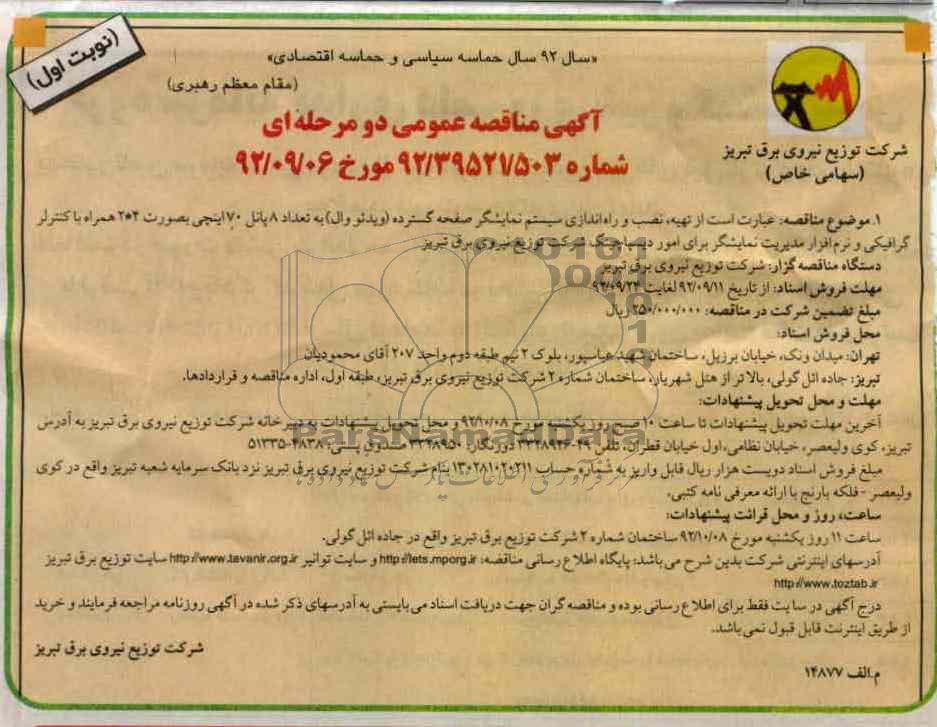 (نوبت اول)
«سال ۹۲ سال حماسه سیاسی و حماسه اقتصادی»
(مقام معظم رهبری)
آگهی مناقصه عمومی دو مرحله‌ای
شماره ۹۲/۳۹۵۲۱/۵۰۳ مورخ ۹۲/۰۹/۰۶
شرکت توزیع نیروی برق تبریز
(سهامی خاص)
۱. موضوع مناقصه: عبارت است از تهیه، نصب و راه‌اندازی سیستم نمایشگر صفحه گسترده (ویدئو وال) به تعداد ۸ پانل ۷۰ اینچی بصورت ۴*۲ همراه با کنترلر
گرافیکی و نرم‌افزار مدیریت نمایشگر برای امور دیسپاچینگ شرکت توزیع نیروی برق تبریز
دستگاه مناقصه گزار: شرکت توزیع نیروی برق تبریز
مهلت فروش اسناد: از تاریخ ۹۲/۰۹/۱۱ لغایت ۹۲/۰۹/۲۴
مبلغ تضمین شرکت در مناقصه: ۲۵۰/۰۰۰/۰۰۰ ریال
محل فروش اسناد:
تهران: میدان ونک، خیابان برزیل، ساختمان شهید عباسپور، بلوک ۲ نیم طبقه دوم واحد ۲۰۷ آقای محمودیان
تبریز: جاده ائل گولی، بالاتر از هتل شهریار، ساختمان شماره ۲ شرکت توزیع نیروی برق تبریز، طبقه اول، اداره مناقصه و قراردادها.
مهلت و محل تحویل پیشنهادات:
آخرین مهلت تحویل پیشنهادات تا ساعت ۱۰ صبح روز یکشنبه مورخ ۹۲/۱۰/۰۸ و محل تحویل پیشنهادات به دبیرخانه شرکت توزیع نیروی برق تبریز به آدرس
تبریز، کوی ولیعصر، خیابان نظامی، اول خیابان قطران، تلفن ۴۹-۳۳۲۸۹۴۶ دورنگار: ۳۳۲۸۹۵۰ صندوق پستی: ۴۸۳۸-۵۱۳۳۵
مبلغ فروش اسناد دویست هزار ریال قابل واریز به شماره حساب ۱۳۰۲۸۱۰۲۰۲۱۱ بنام شرکت توزیع نیروی برق تبریز نزد بانک سرمایه شعبه تبریز واقع در کوی
ولیعصر - فلکه بارنج با ارائه معرفی نامه کتبی.
ساعت، روز و محل قرائت پیشنهادات:
ساعت ۱۱ روز یکشنبه مورخ ۹۲/۱۰/۰۸ ساختمان شماره ۲ شرکت توزیع برق تبریز واقع در جاده ائل گولی.
آدرسهای اینترنتی شرکت بدین شرح می باشد: پایگاه اطلاع رسانی مناقصه: http://iets.mporg.ir و سایت توانیر http://www.tavanir.org.ir سایت توزیع برق تبریز
http://www.toztab.ir
درج آگهی در سایت فقط برای اطلاع رسانی بوده و مناقصه گران جهت دریافت اسناد می بایستی به آدرسهای ذکر شده در آگهی روزنامه مراجعه فرمایند و خرید
از طریق اینترنت قابل قبول نمی باشد.
شرکت توزیع نیروی برق تبریز
م.الف ۱۴۸۷۷